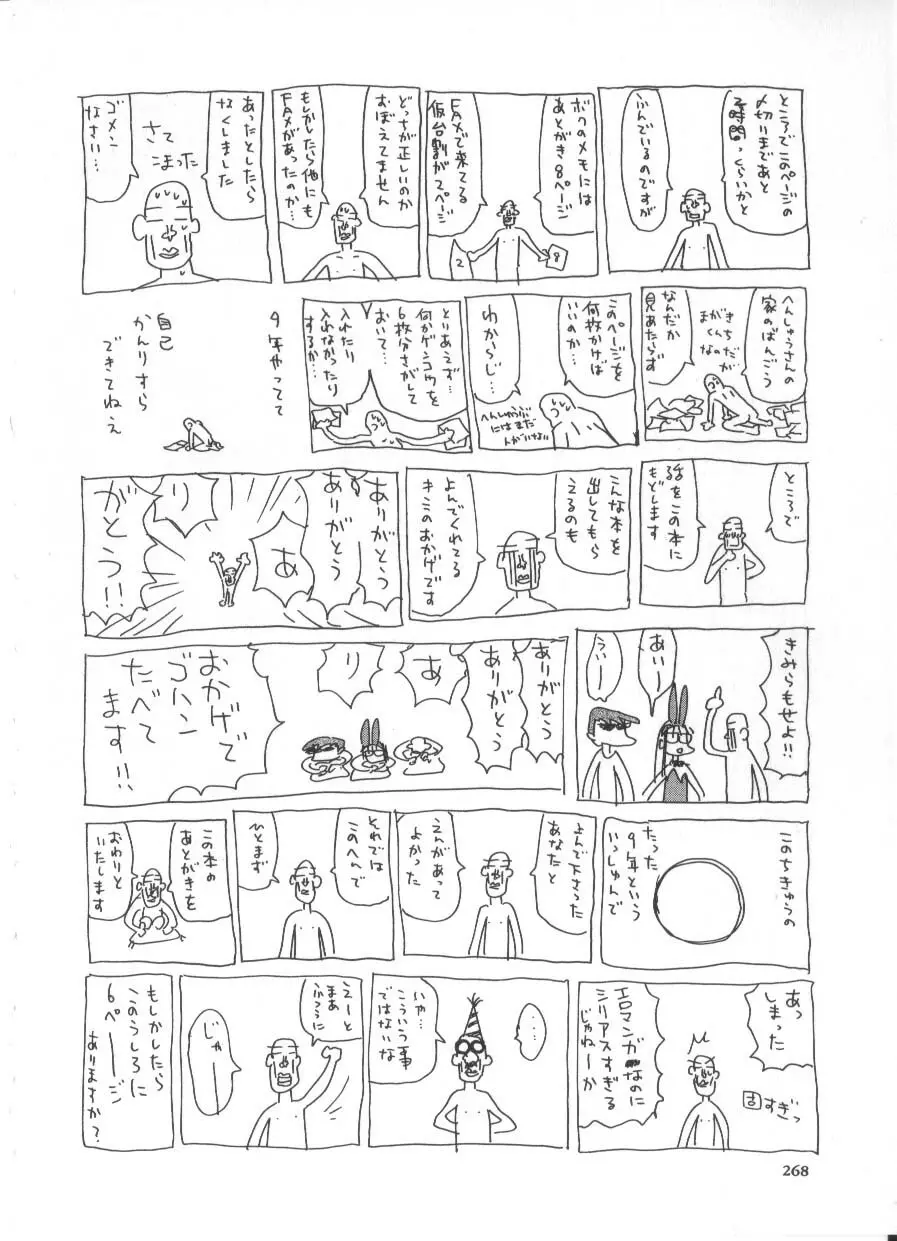 ところでこのページの
〆切りまであと
2時間っくらいかと
ふんでいるのですが
ボクのメモには
あとがき8ページ
FAXで来てる
仮台割が2ページ
8
2
どっちが正しいのか
おぼえてません
もしかしたら他にも
FAXがあったのか…
あったとしたら
なくしました
さて
こまった
ゴメン
なさい…
へんしゅうさんの
家のばんごう
きちょうだが
まがくんなの
なんだか
見あたらず
このページを
何枚かけば
いいのか…
わからじ…
へんしゅうぶ
にはまだ
人がいない
とりあえず…
何かゲンコウを
6枚分さがして
おいて…
入れたり
入れなかったり
するか…
9年やってて
自己
かんりすら
できてねえ
ところで
話をこの本に
もどします
こんな本を
出してもら
えるのも
よんでくれてる
キミのおかげです
ありがとう
ありがとう
あ
り
がとう!!
きみらもせよ!!
あいー
うぃー
ありがとう
ありがとう
あ
り
がとう
おかげで
ゴハン
たべて
ます!!
このちきゅうの
たった
9年という
いっしゅんで
よんで下さった
あなたと
えんがあって
よかった
それでは
このへんで
ひとまず
この本の
あとがきを
おわりと
いたします
あっ
しまった
吉すぎっ
エロマンガなのに
シリアスすぎる
じゃねーか
……
いや…
こういう事
ではないな
えーと
まあ
ふつうに
じゃ
もしかしたら
このうしろに
6ページ
ありますか?
268